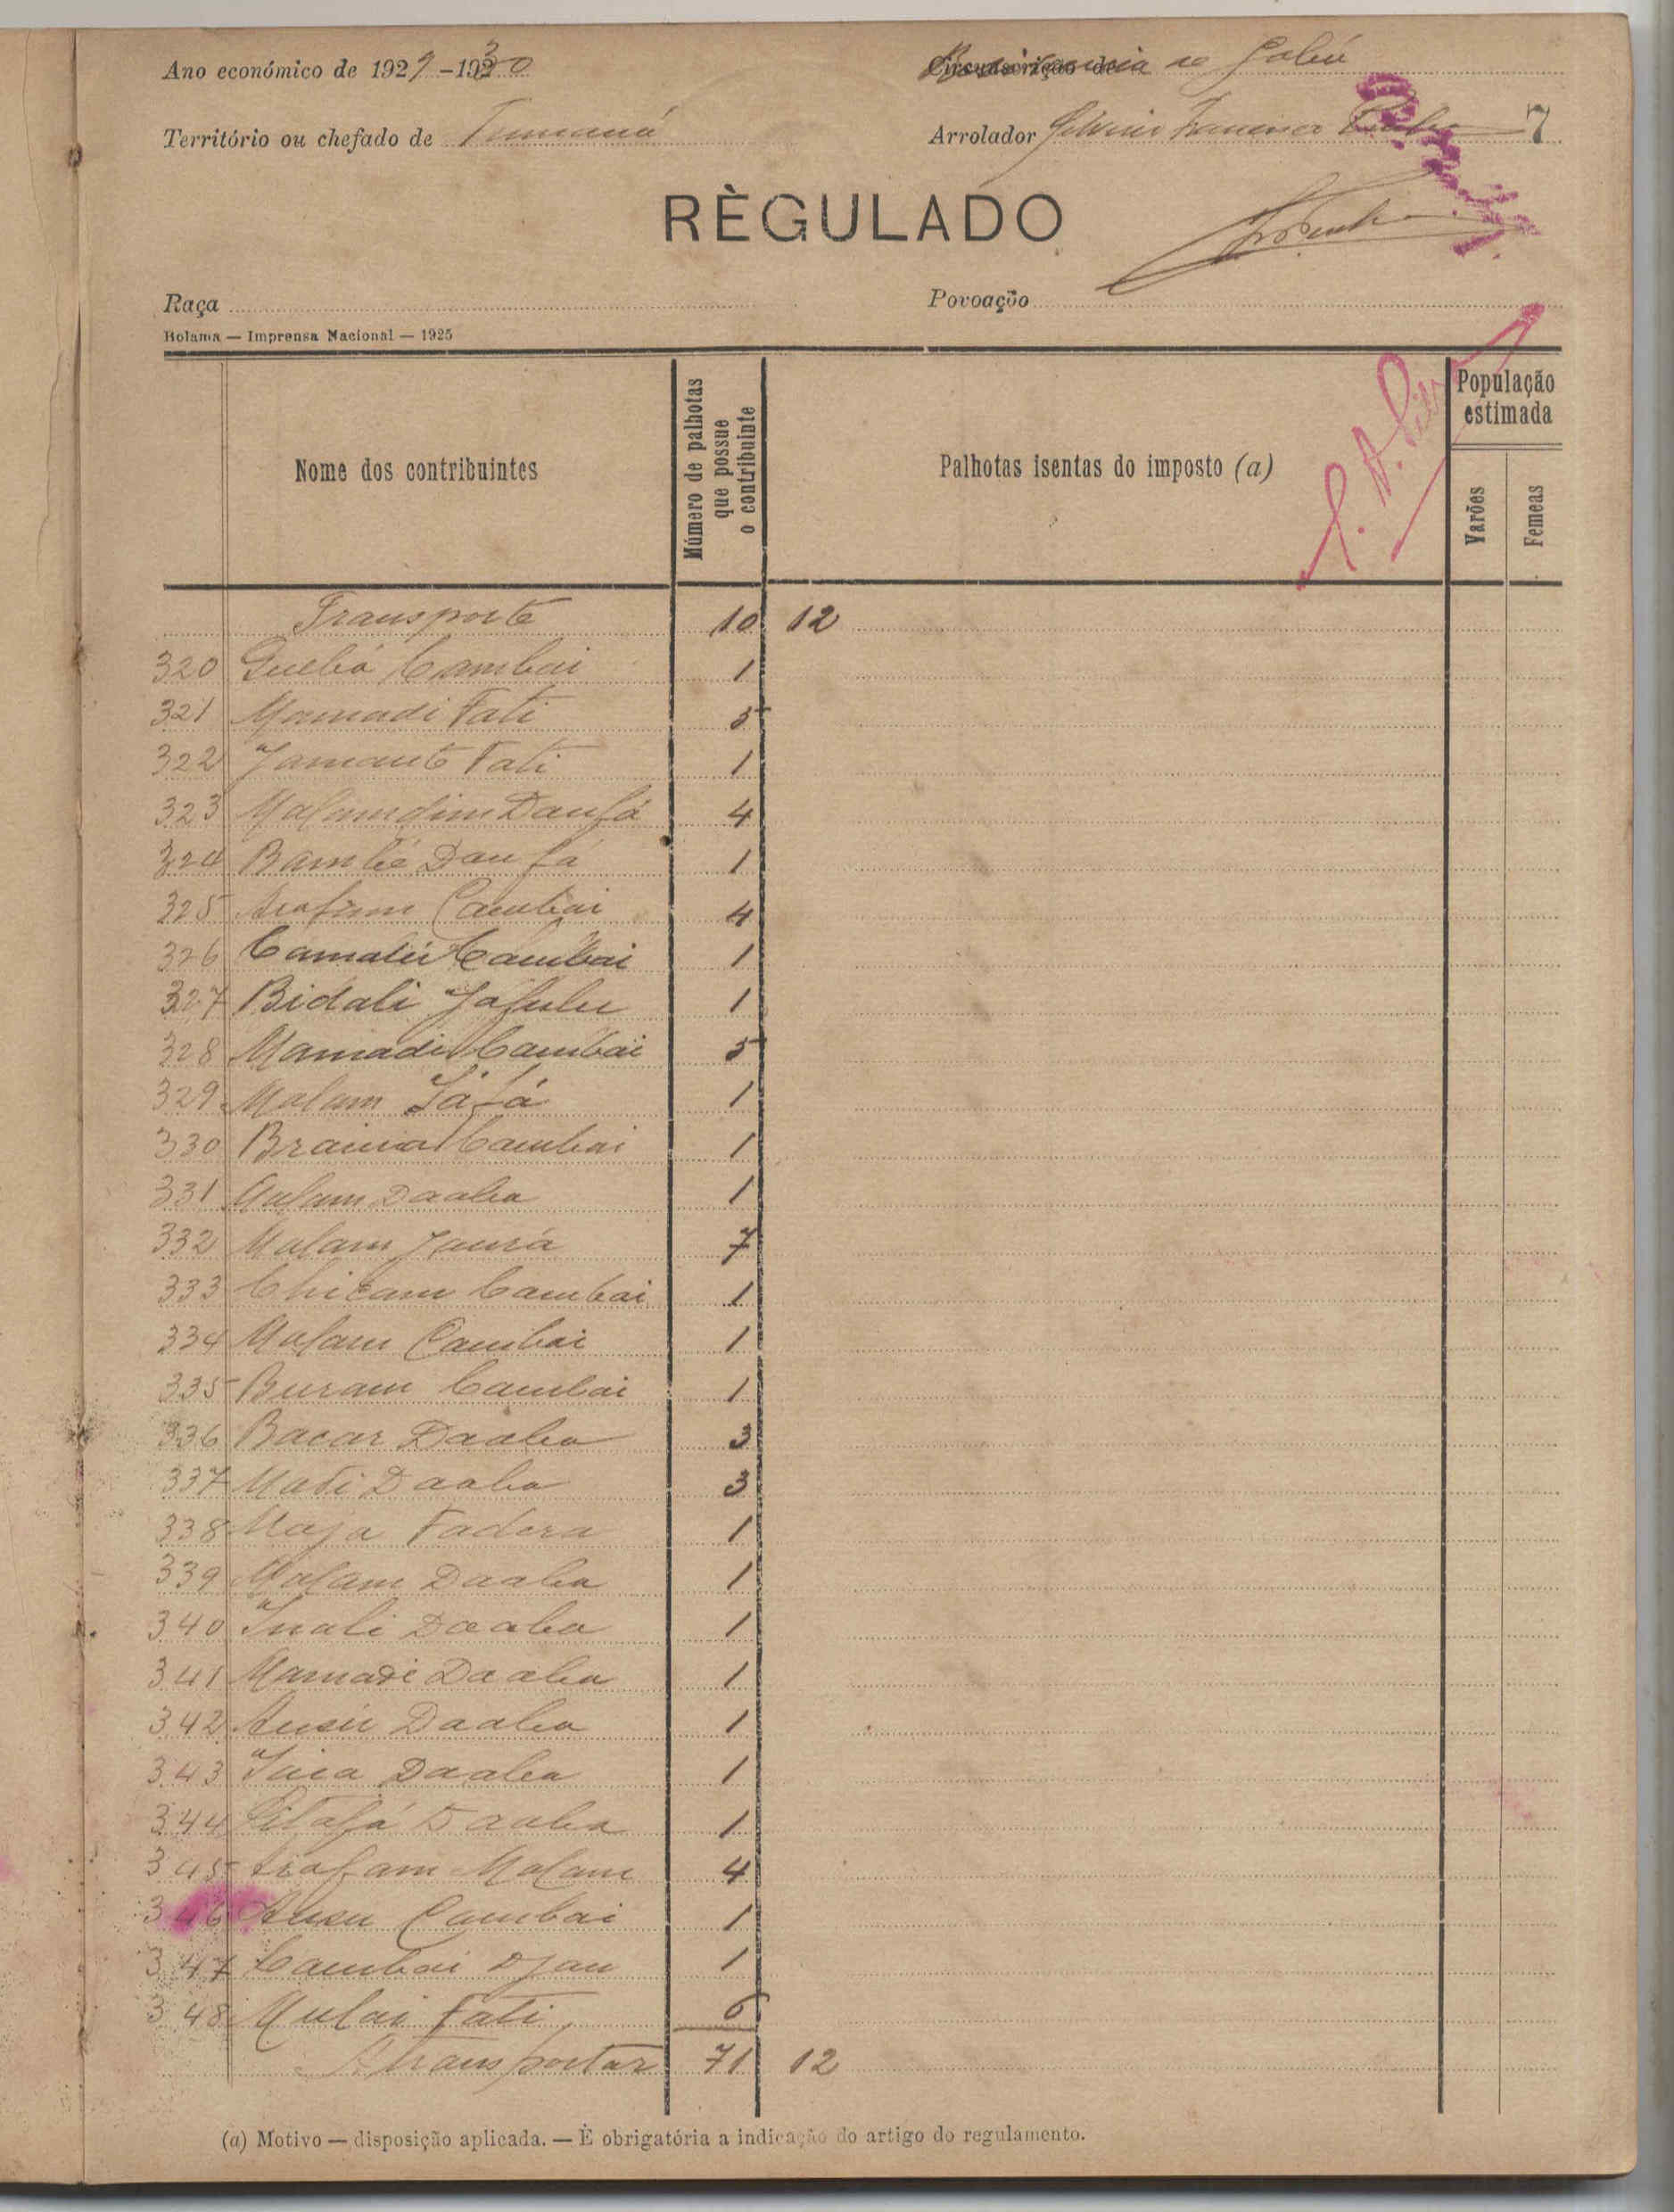 Ano económico de 1929-1930
de Gabú
Território ou chefado de Tumaná
Arrolador Francisco 7
RÈGULADO
Raça
Povoação
Bolama — Imprensa Nacional — 1925
Nome dos contribuintes
Número de palhotas que possue o contribuinte
Palhotas isentas do imposto (a)
População estimada
Varões
Femeas
Transporte 10 12
320 Quebá Cambai 1
321 Mamadi Fati 5
322 Fati 1
323 Malamdim Daufá 4
324 Bambé Daufá 1
325 Arafam Cambai 4
326 Camalú Cambai 1
327 Bidali Jafulu 1
328 Mamadi Cambai 5
329 Malam 1
330 Braima Cambai 1
331 Malam Daaba 1
332 Malam 7
333 Chicam Cambai 1
334 Malam Cambai 1
335 Buram Cambai 1
336 Bacar Daaba 3
337 Madi Daaba 3
338 Maja Fadera 1
339 Malam Daaba 1
340 Inali Daaba 1
341 Mamadi Daaba 1
342 Ansú Daaba 1
343 Daaba 1
344 Daaba 1
345 Arafam Malam 4
346 Ansu Cambai 1
347 Cambai Djau 1
348 Mulai Fati 6
A transportar 71 12
(a) Motivo — disposição aplicada. — È obrigatória a indicação do artigo do regulamento.